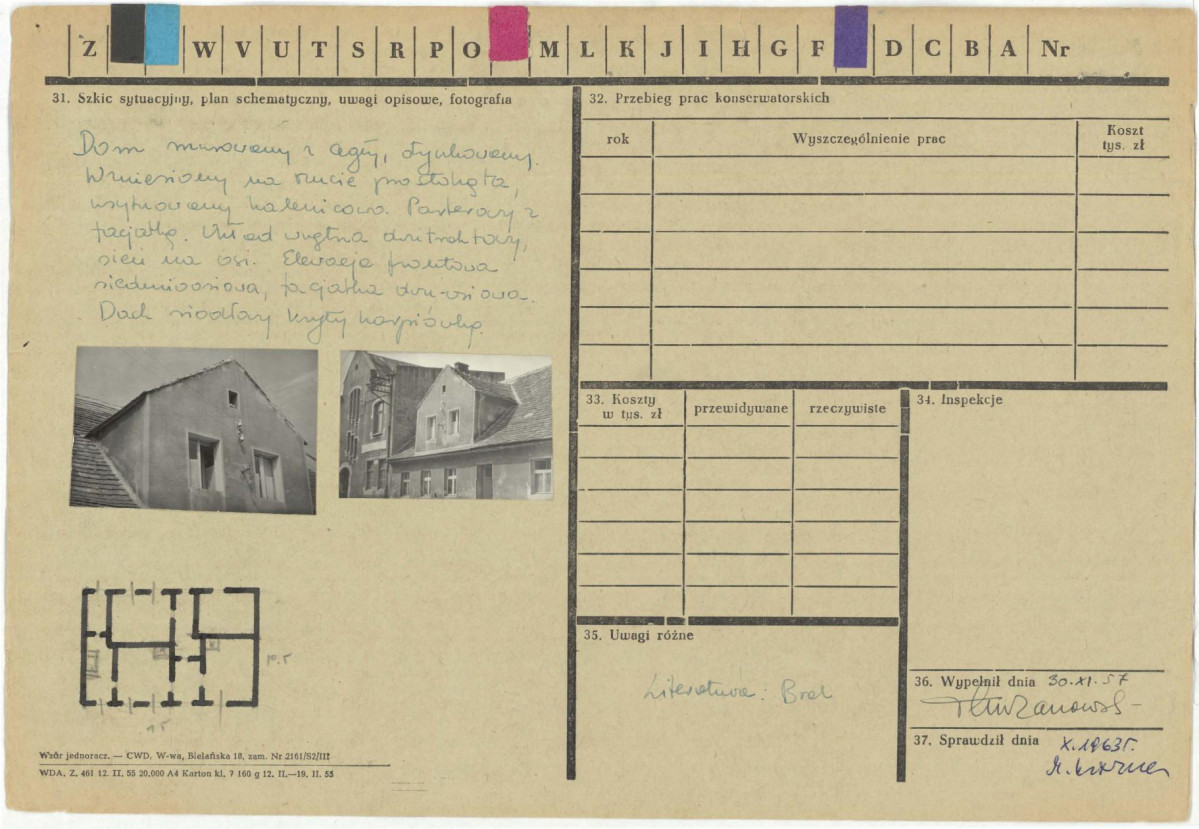 Z W V U T S R P O M L K J I H G F D C B A Nr
31. Szkic sytuacyjny, plan schematyczny, uwagi opisowe, fotografia
Dom murowany z cegły, otynkowany.
Wzniesiony na rzucie prostokąta,
usytuowany kalenicowo. Parterowy z
facjatką. Układ wnętrza dwutraktowy,
sień na osi. Elewacja frontowa
siedmioosiowa, facjatka dwu-osiowa.
Dach siodłowy kryty karpiówką.
10.5
15
Wzór jednoraz. — CWD, W-wa, Bielańska 18, zam. Nr 2161/S2/III
WDA. Z. 461 12. II. 55 20.000 A4 Karton kl. 7 160 g 12. II.—19. II. 55
32. Przebieg prac konserwatorskich
rok Wyszczególnienie prac Koszt
tys. zł
33. Koszty
w tys. zł przewidywane rzeczywiste
34. Inspekcje
35. Uwagi różne
Literatura: Brak
36. Wypełnił dnia 30.XI.57
37. Sprawdził dnia X.1963r.